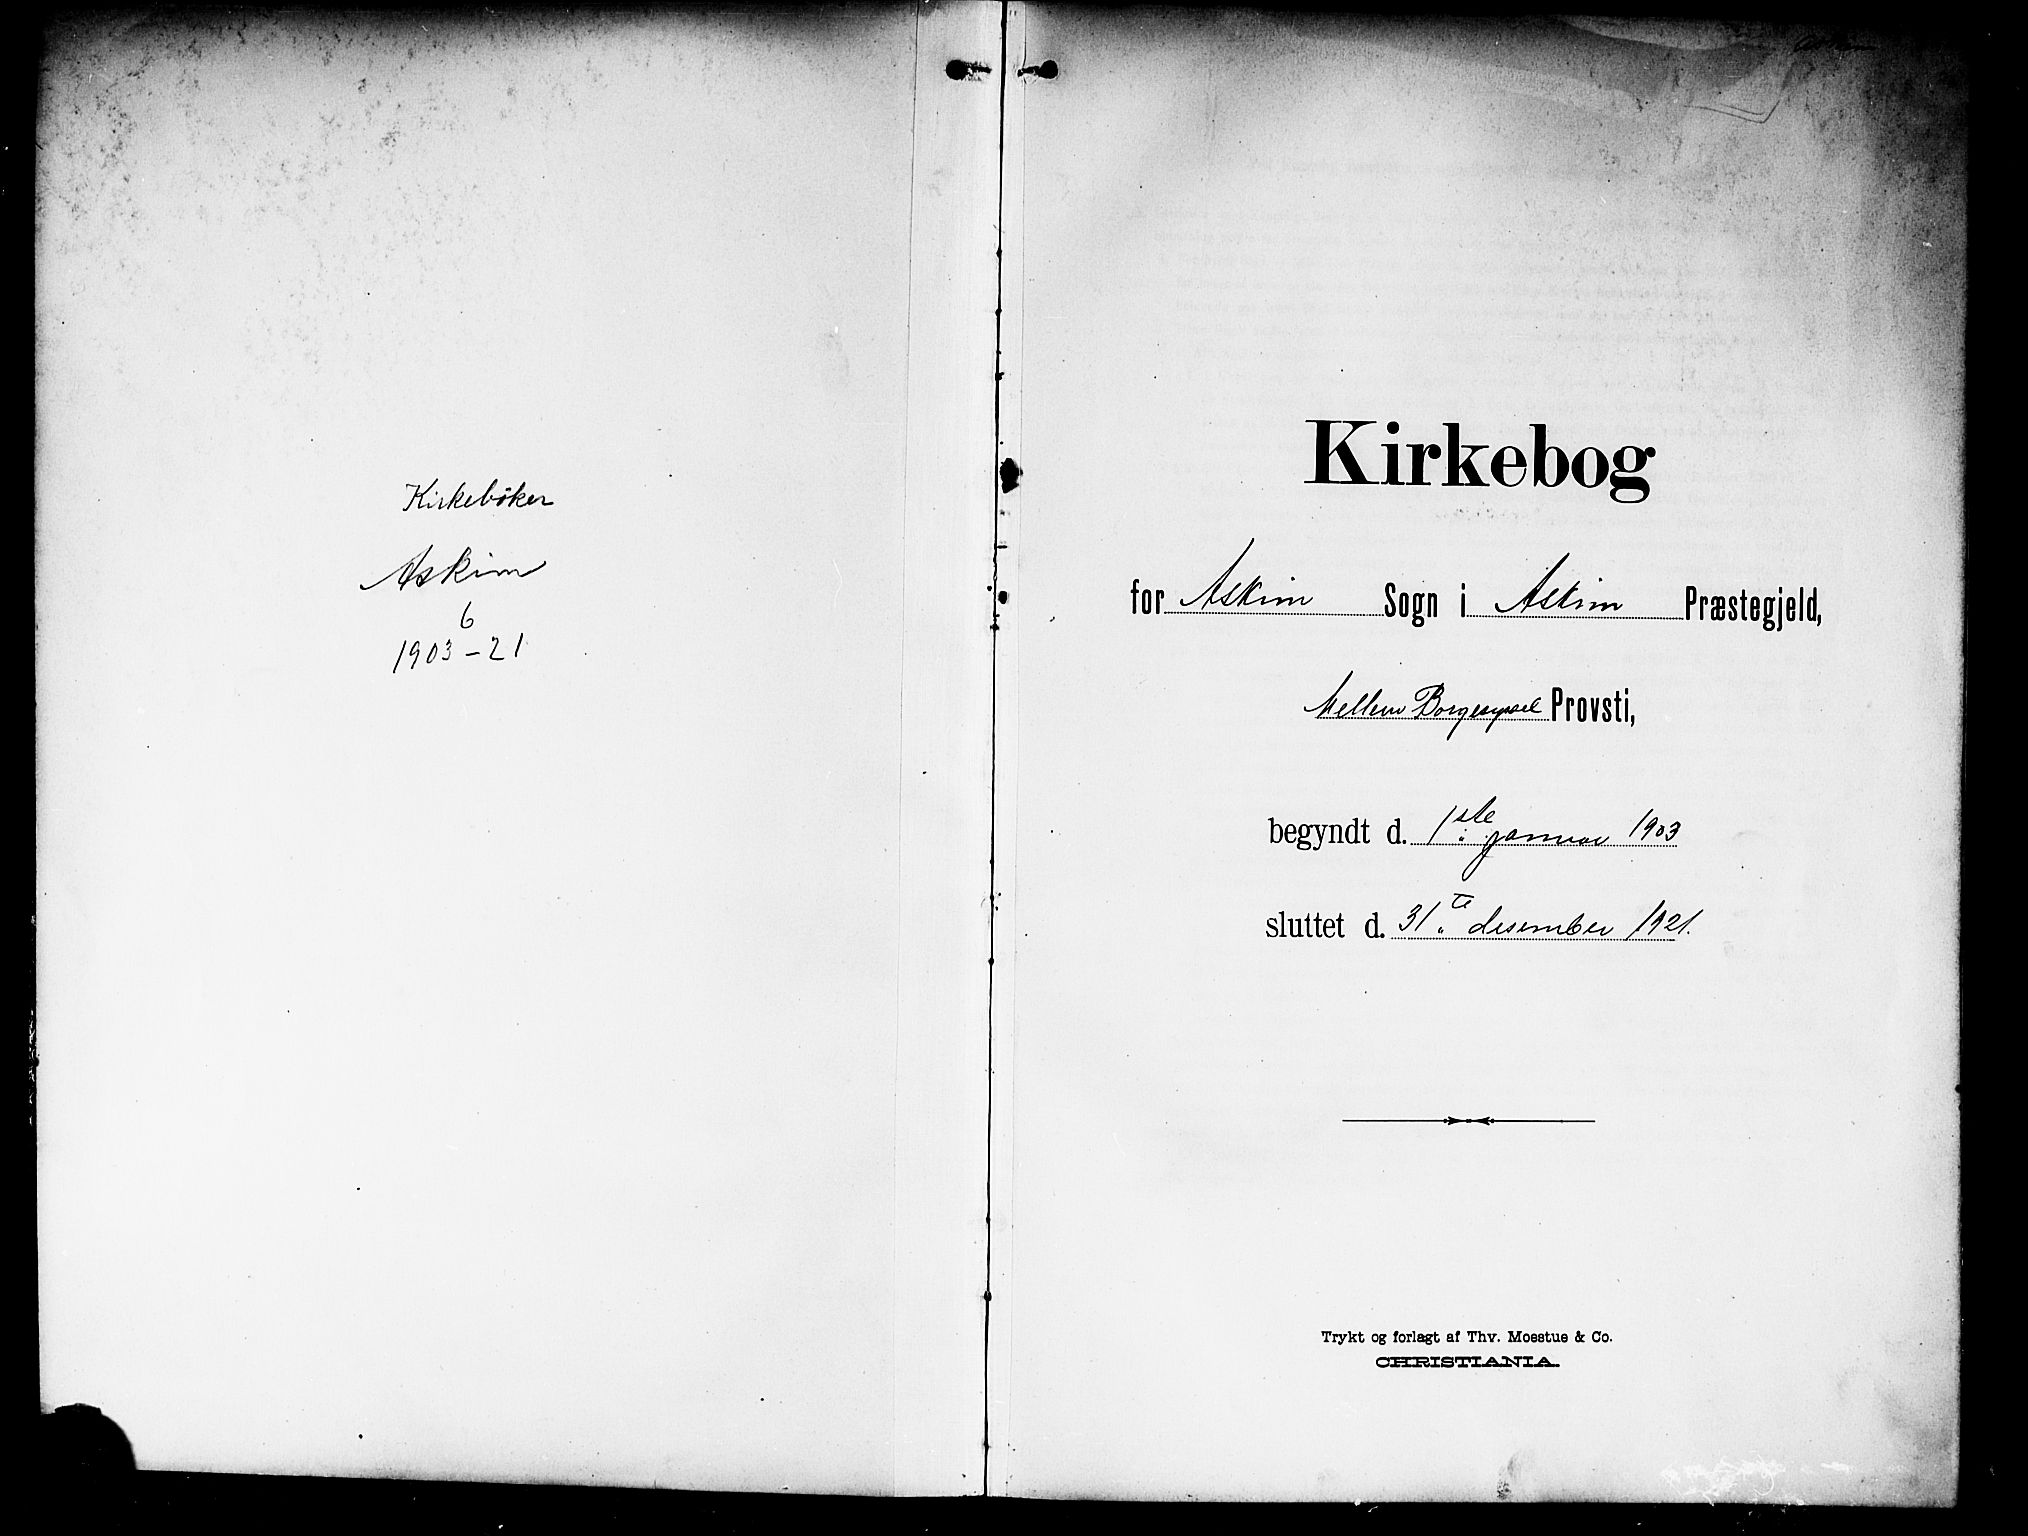 Kirkebøker
Askim
6
1903-21
Kirkebog
for Askim Sogn i Askim Præstegjeld,
Mellem Borgesyssel Provsti,
begyndt d. 1ste januar 1903
sluttet d. 31te desember 1921.
Trykt og forlagt af Thv. Moestue & Co.
CHRISTIANIA.